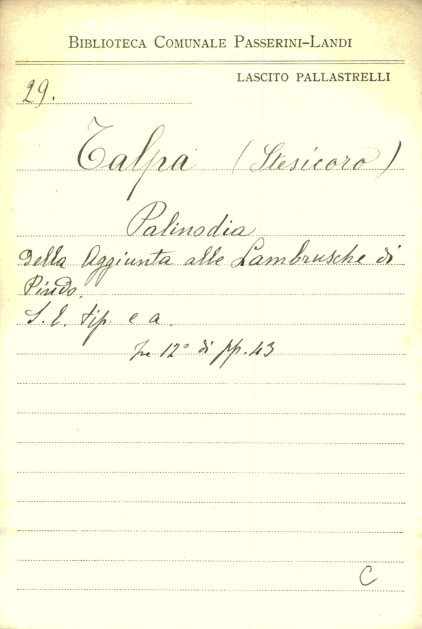 BIBLIOTECA COMUNALE PASSERINI-LANDI
LASCITO PALLASTRELLI
29.
Talpa (Stesicoro)
Palinodia
della Aggiunta alle Lambrusche di
Pindo.
S. l. tip. e a.
In 12° di pp. 43
C